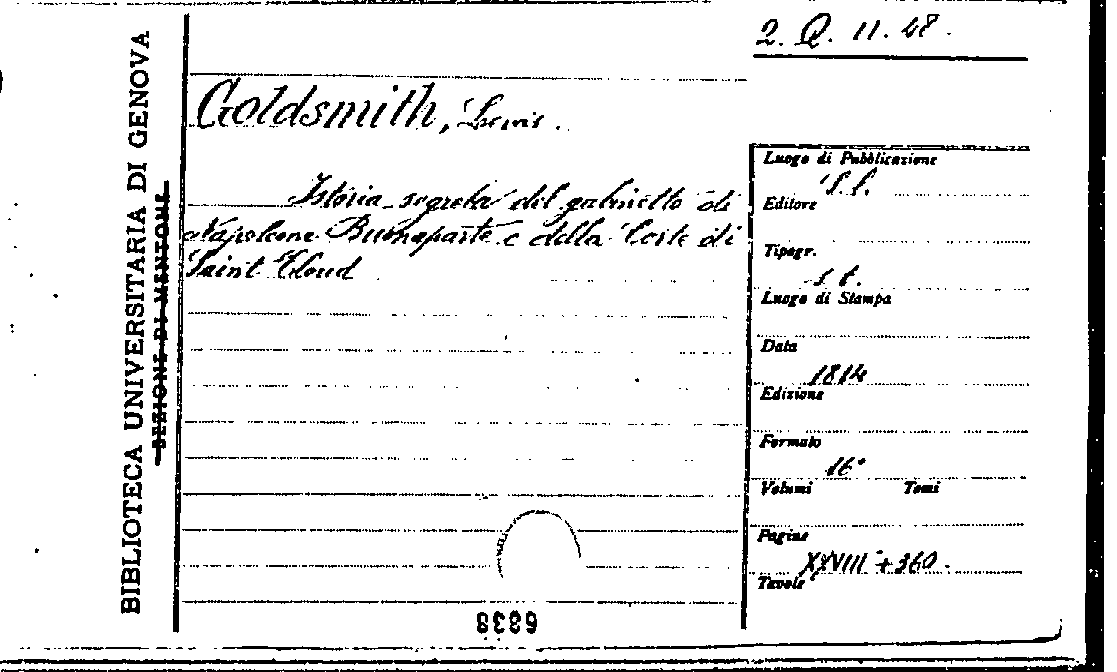 2. Q. 11. 48.
BIBLIOTECA UNIVERSITARIA DI GENOVA
SEZIONE DI MENTONE
Goldsmith, Lewis.
Istoria segreta del gabinetto di
Napoleone Buonaparte e della Corte di
Saint Cloud
Luogo di Pubblicazione
S. l.
Editore
Tipogr.
s. t.
Luogo di Stampa
Data
1814
Edizione
Formato
16°
Volumi Tomi
Pagine
XXVIII + 360.
Tavole